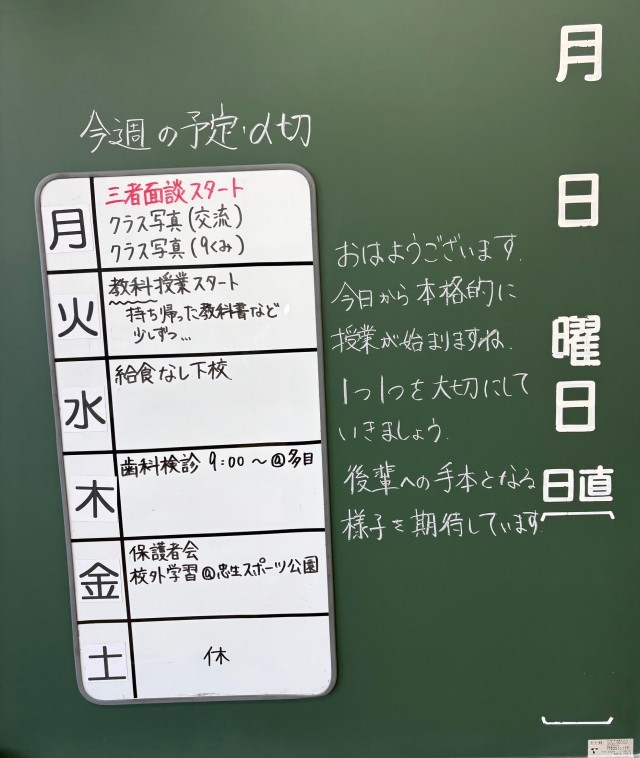 今週の予定・〆切
月
三者面談スタート
クラス写真(交流)
クラス写真(9くみ)
火
教科授業スタート
持ち帰った教科書など
少しずつ...
水
給食なし下校
木
歯科検診 9:00〜@多目
金
保護者会
校外学習@忠生スポーツ公園
土
休
おはようございます.
今日から本格的に
授業が始まりますね.
1つ1つを大切にして
いきましょう.
後輩への手本となる
様子を期待しています.
月
日
曜
日
日直